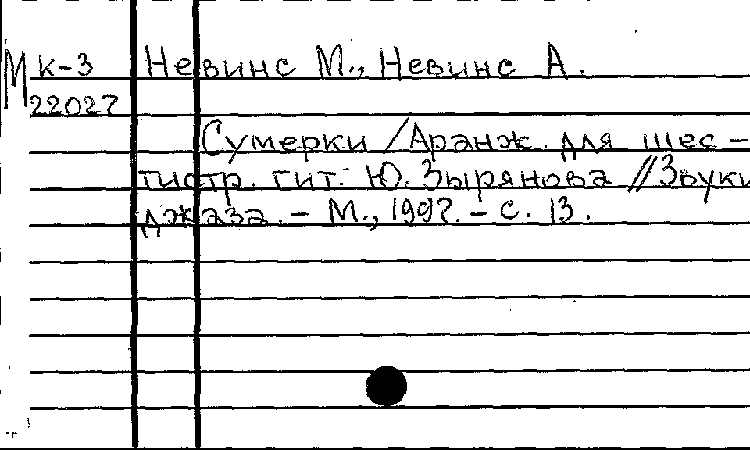 М К-3 Невинс М., Невинс А.
22027
Сумерки / Аранж. для шес-
тистр. гит. Ю. Зырянова // Звуки
джаза. - М., 1992. - С. 13.